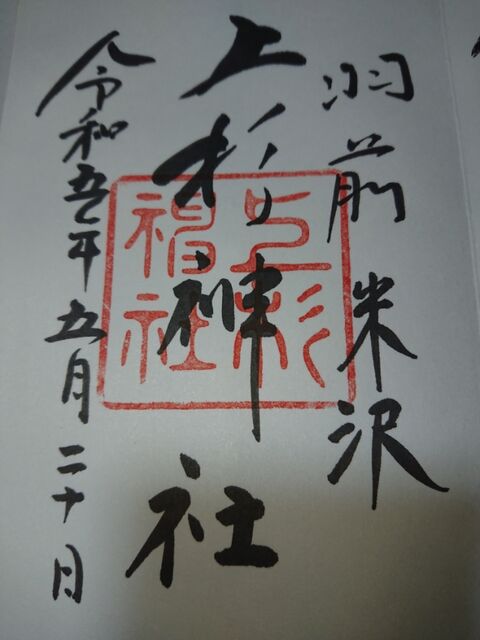 羽前米沢
上杉神社
上杉神社
令和五年五月二十日